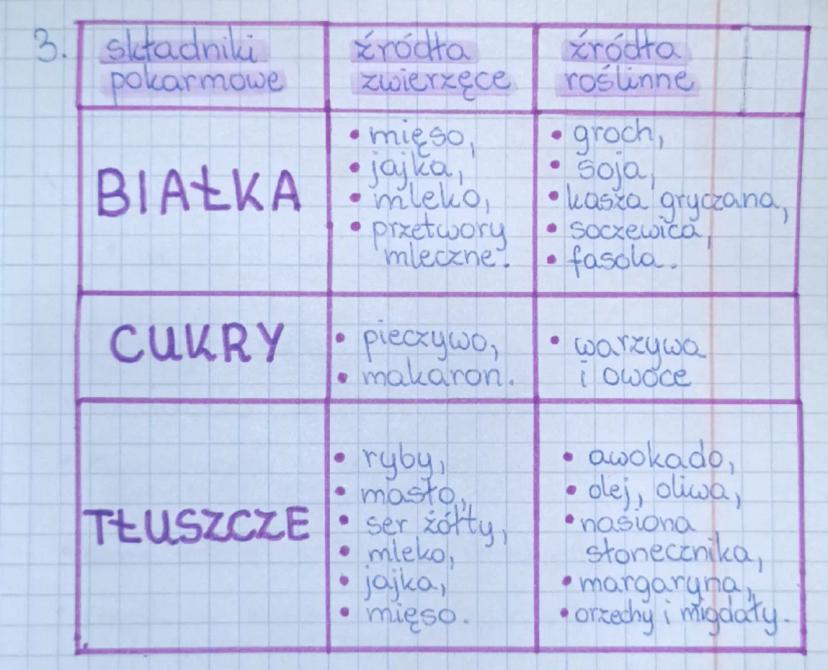 3.
składniki
pokarmowe
źródła
zwierzęce
źródła
roślinne
BIAŁKA
• mięso,
• jajka,
• mleko,
• przetwory
mleczne.
• groch,
• soja,
• kasza gryczana,
• soczewica,
• fasola.
CUKRY
• pieczywo,
• makaron.
• warzywa
i owoce
TŁUSZCZE
• ryby,
• masło,
• ser żółty,
• mleko,
• jajka,
• mięso.
• awokado,
• olej, oliwa,
• nasiona
słonecznika,
• margaryna,
• orzechy i migdały.